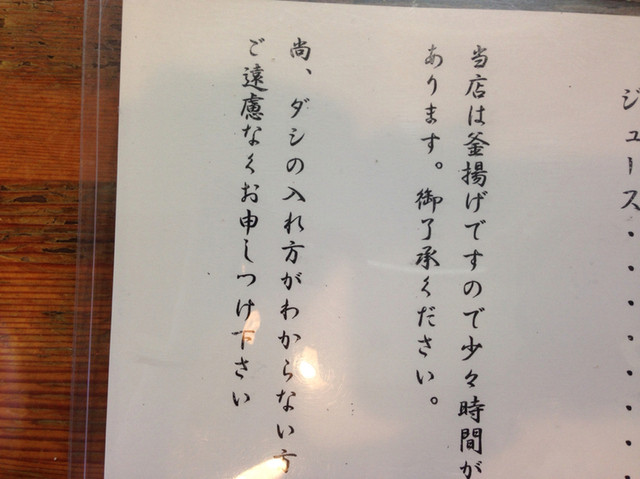 ジュース・・・・・・・・
当店は釜揚げですので少々時間が
あります。御了承ください。
尚、ダシの入れ方がわからない方
ご遠慮なくお申しつけ下さい